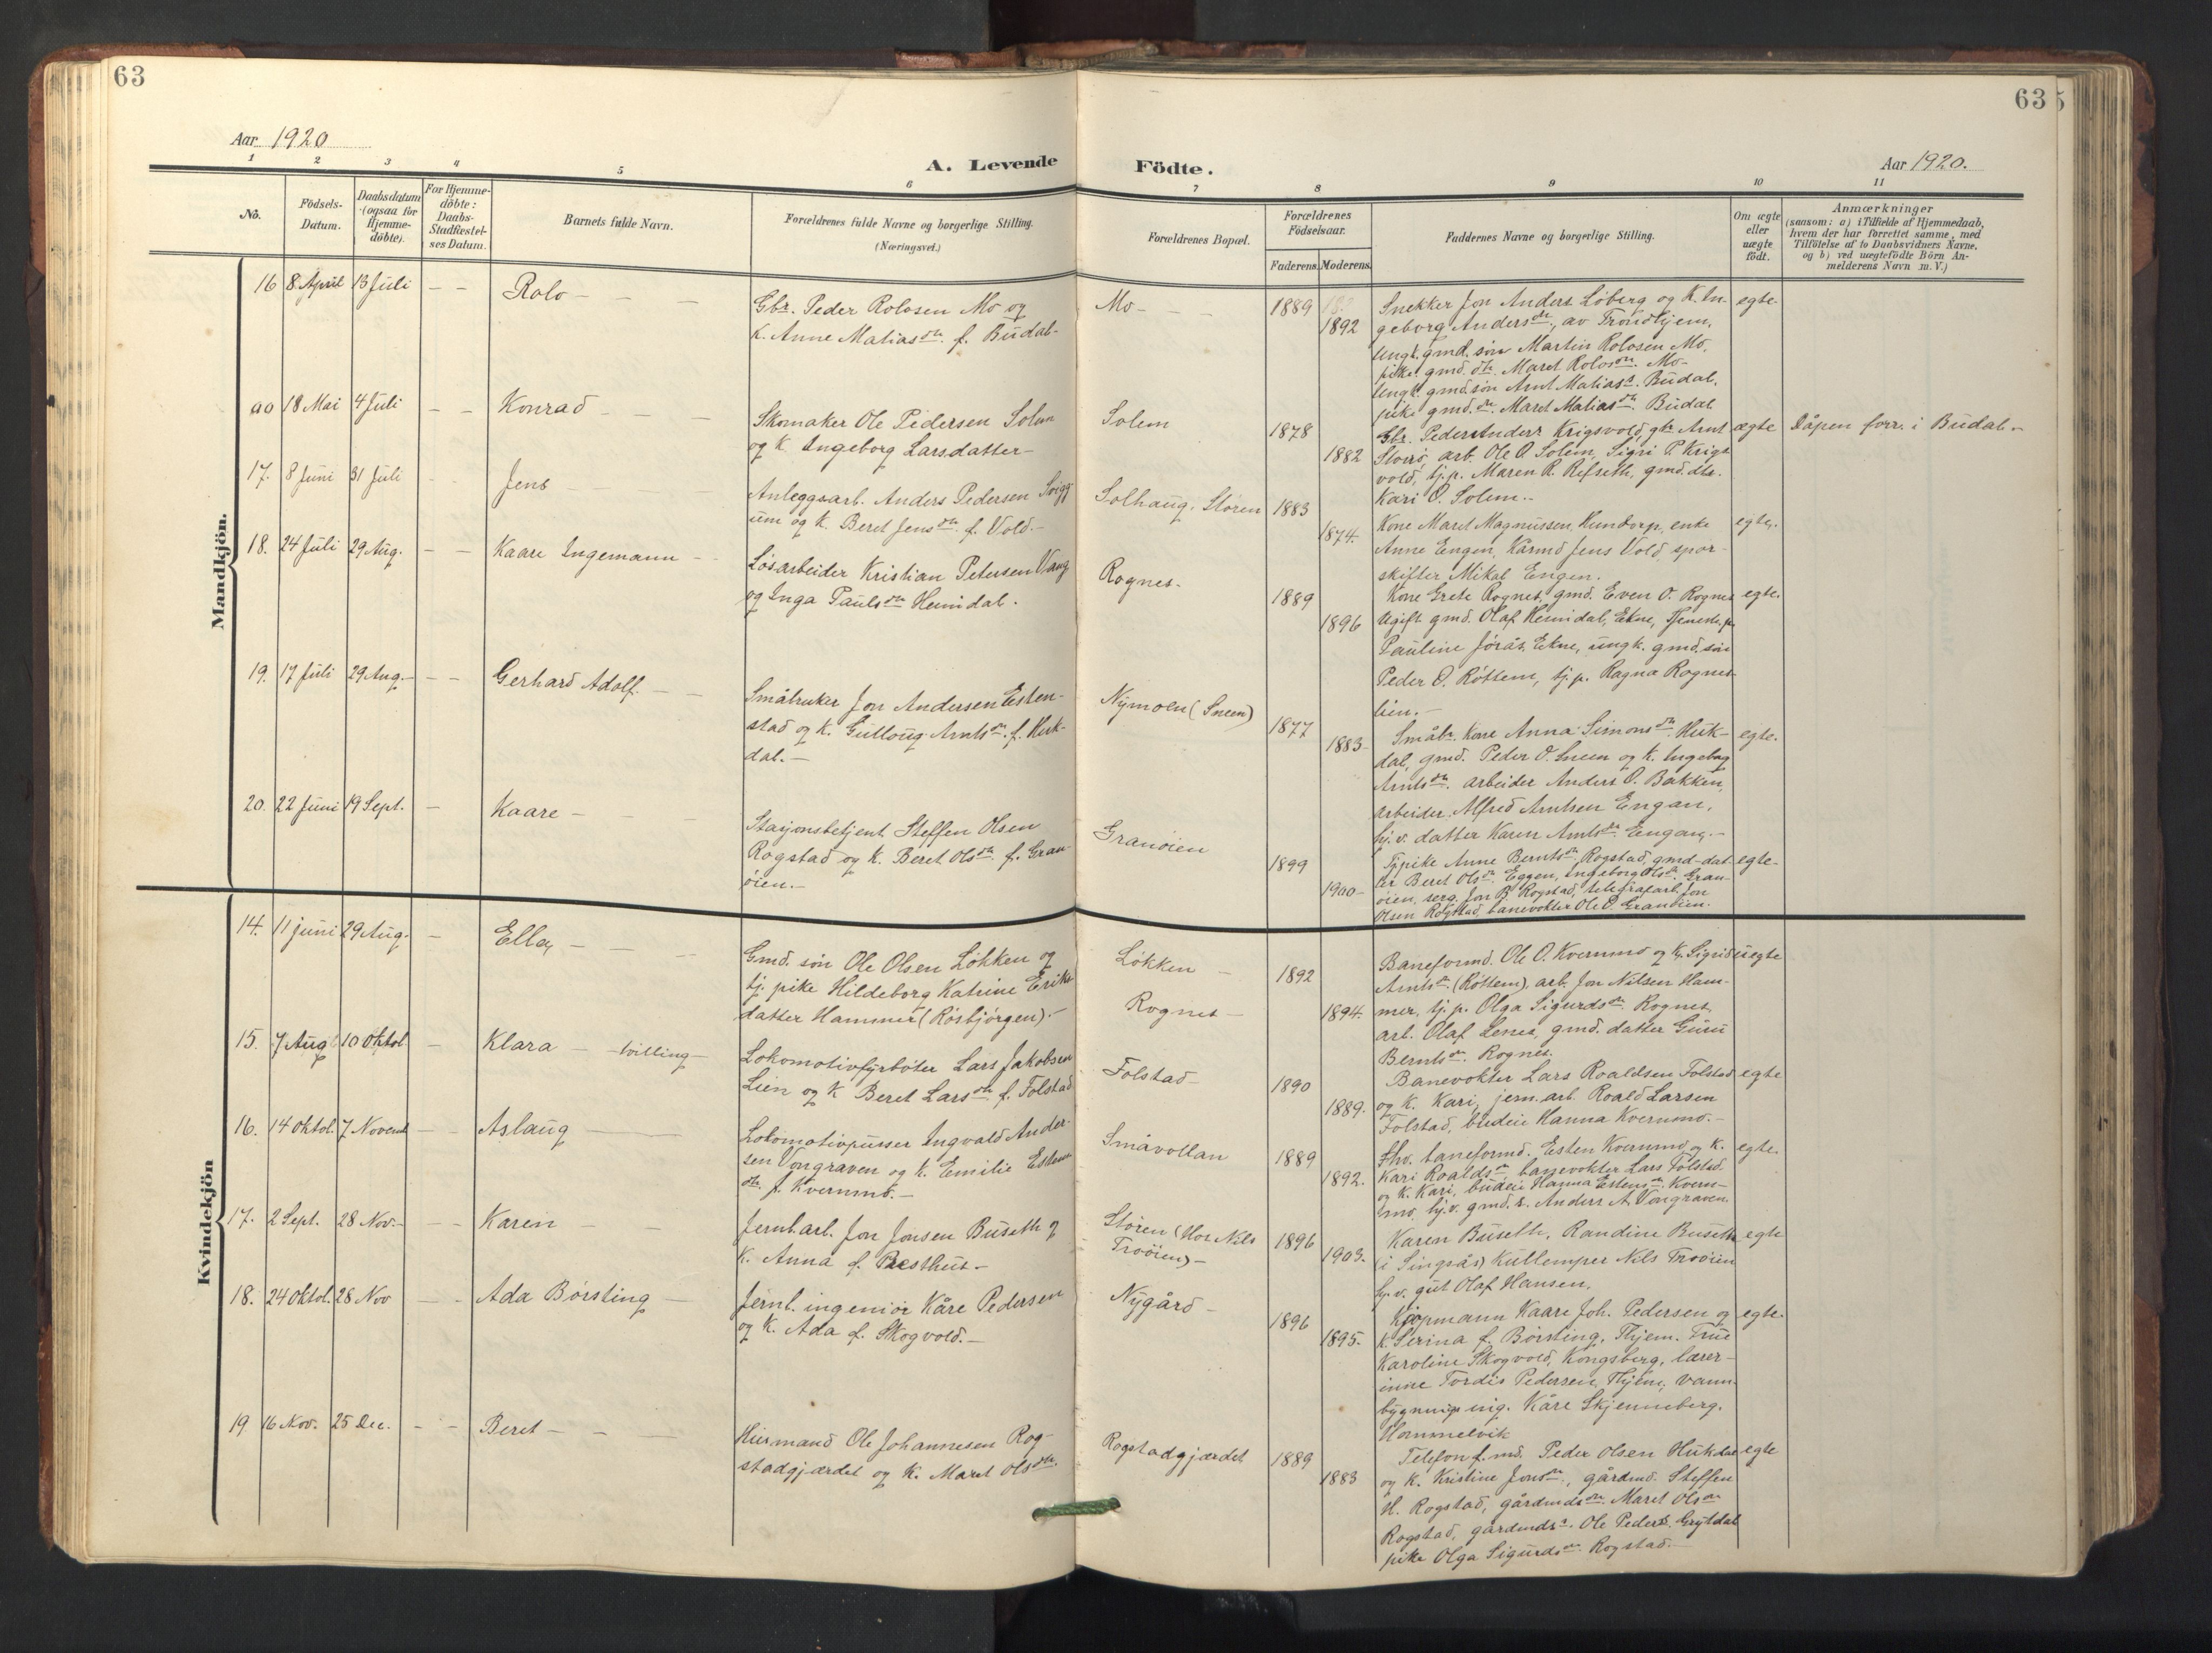 63
63
Aar 1920
A. Levende
Födte.
Aar 1920.
1 2 3 4 5 6 7 8 9 10 11
No.
Födsels-
Datum.
Daabsdatum
(ogsaa for
Hjemme-
döbte).
For Hjemme-
döbte:
Daabs-
Stadfæstel-
ses Datum.
Barnets fulde Navn.
Forældrenes fulde Navne og borgerlige Stilling.
(Næringsvei.)
Forældrenes Bopæl.
Forældrenes
Födselsaar.
Faderens. Moderens.
Faddernes Navne og borgerlige Stilling.
Om ægte
eller
uægte
födt.
Anmærkninger
(saasom: a) i Tilfælde af Hjemmedaab,
hvem der har forrettet samme, med
Tilföielse af to Daabsvidners Navne,
og b) ved uægtefödte Börn An-
melderens Navn m. V.)
Mandkjön.
16 8 April 13 Juli – – Rolo – – –
Gbr. Peder Rolosen Mo og
k. Anne Matiasdtr. f. Budal-
Mo – –
1889
1892
Snekker Jon Anders. Löberg og K. In-
geborg Andersdtr., av Trondhjem,
ungk. gmd. søn Martin Rolosen Mo,
pike gmd. dtr. Maret Rolosdtr. Mo-
ungk. gmd. søn Arnt Matiass. Budal,
pike gmd. dtr. Maret Matiasdtr. Budal.
egte
ao 18 Mai 4 Juli – – Konrad – – –
Skomaker Ole Pedersen Solem
og k. Ingeborg Larsdatter –
Solem
1878
1882
Gbr. Peder Anders. Krigsvold, gbr. Arnt
Storrø, arb. Ole O. Solem, Sigri P. Krigs
vold, tj.p. Maren R. Refseth, gmd. dtr.
Kari O. Solem.-
ægte
Dåpen forr. i Budal –
17. 8 Juni 31 Juli Jens
Anleggsarb. Anders Pedersen Svigg-
um og k. Beret Jensdtr. f. Vold. –
Solhaug, Støren
1883
1874.
Kone Maret Magnussen, Hundorp, enke
Anne Engen, Karmd Jens Vold, spor-
skifter Mikal Engen.
egte.
18. 24 Juli 29 Aug. – – Kaare Ingemann –
Løsarbeider Kristian Petersen Vang
og Inga Paulsdtr. Heimdal.
Rognes-
1889
1896
Kone Grete Rognes, gmd. Even O. Rognes
Ugift gmd. Olaf Heimdal, Ekne, Tjenestp.
Pauline Jørås, Ekne, ungk. gmd. søn
Peder O. Røttem, tj.p. Ragna Rognes-
lien. –
egte.
19. 17 Juli 29 Aug. – – Gerhard Adolf. – –
Småbruker Jon Andersen Esten-
stad og k. Gulloug Arntsdtr. f. Huk-
dal. –
Nymoen (Sneen)
1877
1883-
Småbr. kone Anna Simonsdtr. Huk-
dal, gmd. Peder O. Sneen og k. Ingeborg
Arntsdtr. arbeider Anders O. Bakken,
arbeider Alfred Arntsen Engan,
hj.v. datter Karen Arntsdtr. Engan. –
egte.
20. 22 Juni 19 Sept. – Kaare – – –
Stasjonsbetjent Steffen Olsen
Rogstad og k. Beret Olsdtr. f. Gran-
øien. –
Granøien
1899
1900-
Tj.pike Anne Berntsdtr. Rogstad, gmd-dat
ter Beret Olsdtr. Eggen, Ingeborg Olsdtr. Gran-
øien, serg. Jon B. Rogstad, telegrafarb. Jon
Olsen Rogstad, banevokter Ole O. Granøien.
egte-
Kvindekjön
14. 11 juni 29 Aug. – Ella – – –
Gmd. søn Ole Olsen Løkken og
tj. pike Hildeborg Katrine Eriks
datter Hammer (Rösbjørgen). –
Løkken –
Rognes –
1892
1894.
Baneformd. Ole O. Kvernmo og k. Sigrid
Arntsdtr. (Røttem), arb. Jon Nilsen Ham-
mer, tj.p. Olga Sigurdsdtr. Rognes,
arb. Olaf Lenes, gmd. datter Guru
Berntsdtr. Rognes.
uegte
15. 7 Aug. 10 Oktob. – Klara – tvilling –
Lokomotivfyrbøter Lars Jakobsen
Lien og k Beret Larsdtr. f. Folstad
Folstad –
1890
1889.
Banevokter Lars Roaldsen Folstad
og k. Kari, jern. arb. Roald Larsen
Folstad, budeie Hanna Kvernmo. –
egte
16. 14 Oktob. 7 Novemb – – Aslaug
Lokomotivpusser Ingvald Ander-
sen Vongraven og k. Emilie Estens
dtr. f. Kvernmo. –
Småvollan
1889
1892.
Fhv. baneformd. Esten Kvernmo og k.
Kari Roaldsdtr. banevokter Lars Folstad
og k. Kari, budeie Hanna Estensdtr. Kvern-
mo, hj.v. gmd. s. Anders A. Vongraven.
egte.
17. 2 Sept. 28 Nov. – – – Karen – –
Jernb. arb. Jon Jonsen Buseth og
k. Anna f. Presthus –
Støren (Hos Nils
Troøien) –
1896
1903.
Karen Buseth, Randine Buseth
(i Singsås) Kullemper Nils Troøien
hj.v. gut Olaf Hansen.
egte
18. 24 Oktob. 28 Nov – – Ada Børsting –
Jernb. ingeniør Kåre Pedersen
og k. Ada f. Skogvold. –
Nygård –
1896
1895.
Kjøpmann Kaare Joh. Pedersen og
k. Serina f. Børsting, Thjem. Frue
Karoline Skogvold, Kongsberg, lærer-
inne Tordis Pedersen, Thjem, vann-
bygnings ing. Kåre Skjenneberg.
Hommelvik
egte.
19 16 Nov. 25 Dec. – – Beret – – –
Husmand Ole Johannesen Rog-
stadgjærdet og k. Maret Olsdtr.
Rogstadgjærdet
1889
1883
Telefon f.md. Peder Olsen Hukdal
og k. Kristine Jonsdtr., gårdmd. Steffen
H. Rogstad, gårdmdsdtr. Maret Olsdtr
Rogstad, gårdmds. Ole Peders. Grytdal
pike Olga Sigurdsdtr. Rogstad. –
egte